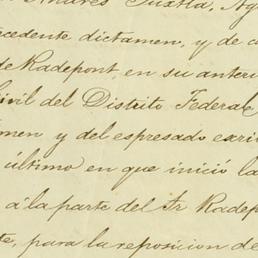 Andres Tuxtla, Ag
cedente dictamen, y de c
de Radepont, en su anteri
Civil del Distrito Federal
men y del espresado escri
último en que inició la
a la parte del Sr Radep
te, para la reposicion de